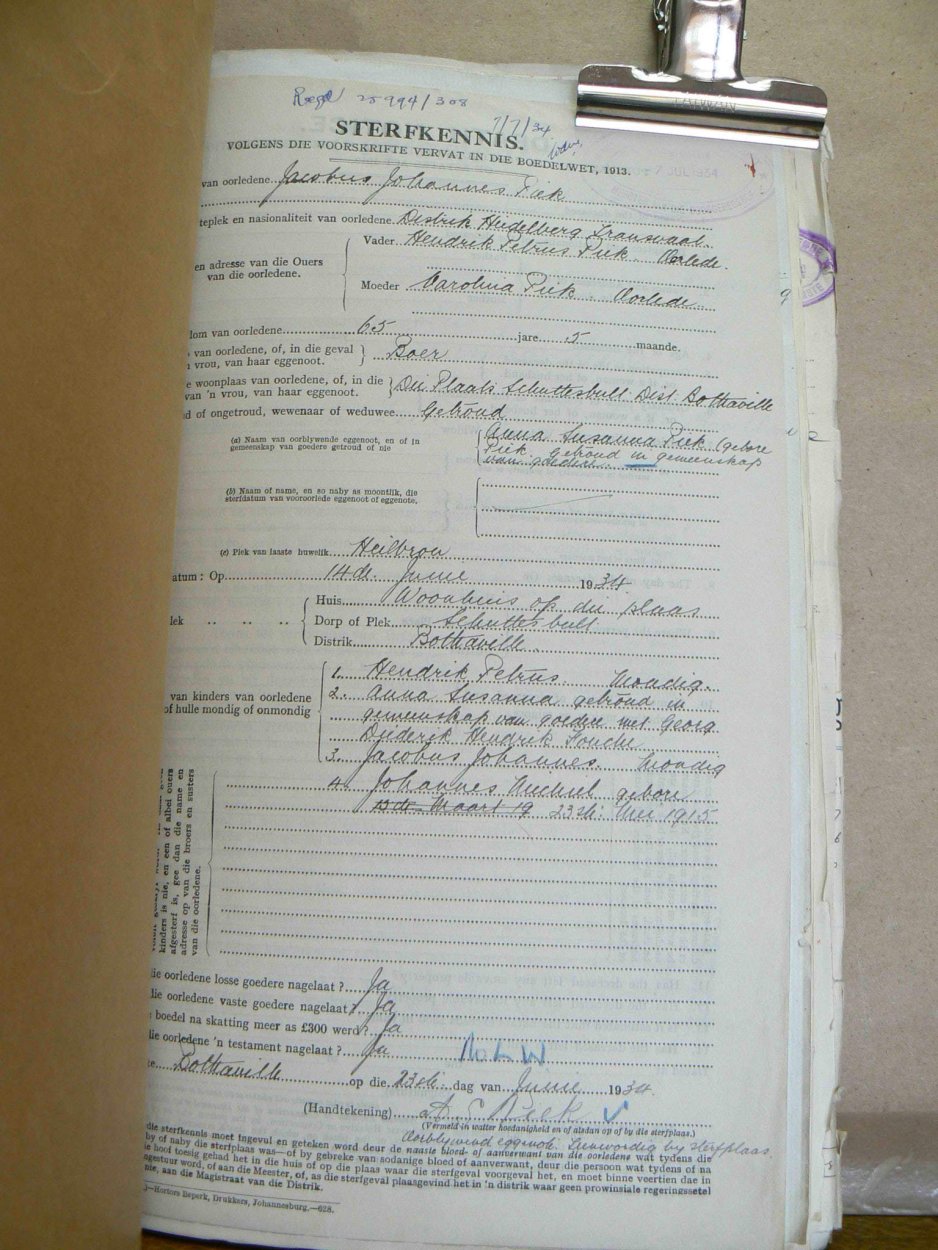 25994/308
7/7/34
STERFKENNIS.
VOLGENS DIE VOORSKRIFTE VERVAT IN DIE BOEDELWET, 1913.
7 JUL 1934
TAIWAN
van oorledene Jacobus Johannes Piek
teplek en nasionaliteit van oorledene. Distrik Heidelberg Transvaal.
Vader Hendrik Petrus Piek. Oorlede.
en adresse van die Ouers
van die oorledene.
Moeder Carolina Piek. Oorlede
dom van oorledene 65 jare 5 maande.
van oorledene, of, in die geval
vrou, van haar eggenoot. Boer
e woonplaas van oorledene, of, in die
van 'n vrou, van haar eggenoot. Die Plaats Schuttesbult Dist Bothaville
d of ongetroud, wewenaar of weduwee Getroud
(a) Naam van oorblywende eggenoot, en of in
gemeenskap van goedere getroud of nie
Anna Susanna Piek (gebore
Piek getroud in gemeenskap
van goedere
(b) Naam of name, en so naby as moontlik, die
sterfdatum van vooroorlede eggenoot of eggenote.
(c) Plek van laaste huwelik. Heilbron
atum: Op 14de Junie 1934
lek Huis Woonhuis op die plaas
Dorp of Plek Schuttesbult
Distrik Bothaville
van kinders van oorledene
of hulle mondig of onmondig
1. Hendrik Petrus. Mondig.
2. Anna Susanna getroud in
gemeenskap van goedere met Georg
Diederik Hendrik Fouche
3. Jacobus Johannes. Mondig
4. Johannes Michiel gebore
13de Maart 19 23ste Mei 1915
kinders is nie, en een of albei ouers
afgesterf is, gee dan die name en
adresse op van die broers en susters
van die oorledene.
die oorledene losse goedere nagelaat? Ja
die oorledene vaste goedere nagelaat? Ja
boedel na skatting meer as £300 werd? Ja
die oorledene 'n testament nagelaat? Ja
Bothaville op die 23ste dag van Junie 1934
(Handtekening) A S Piek
(Vermeld in watter hoedanigheid en of aldan op of by die sterfplaas.)
Oorblywend eggenote. Teenwoordig by sterfplaas
die sterfkennis moet ingevul en geteken word deur de naaste bloed- of aanverwant van die oorledene wat tydens die
by of naby die sterfplaas was—of by gebreke van sodanige bloed of aanverwant, deur die persoon wat tydens of na
ie hoof toesig gehad het in die huis of op die plaas waar die sterfgeval voorgeval het, en moet binne veertien dae in
ngestuur word, of aan die Meester, of, as die sterfgeval plaasgevind het in 'n distrik waar geen prowinsiale regeringssetel
nie, aan die Magistraat van die Distrik.
—Hortors Beperk, Drukkers, Johannesburg.—628.